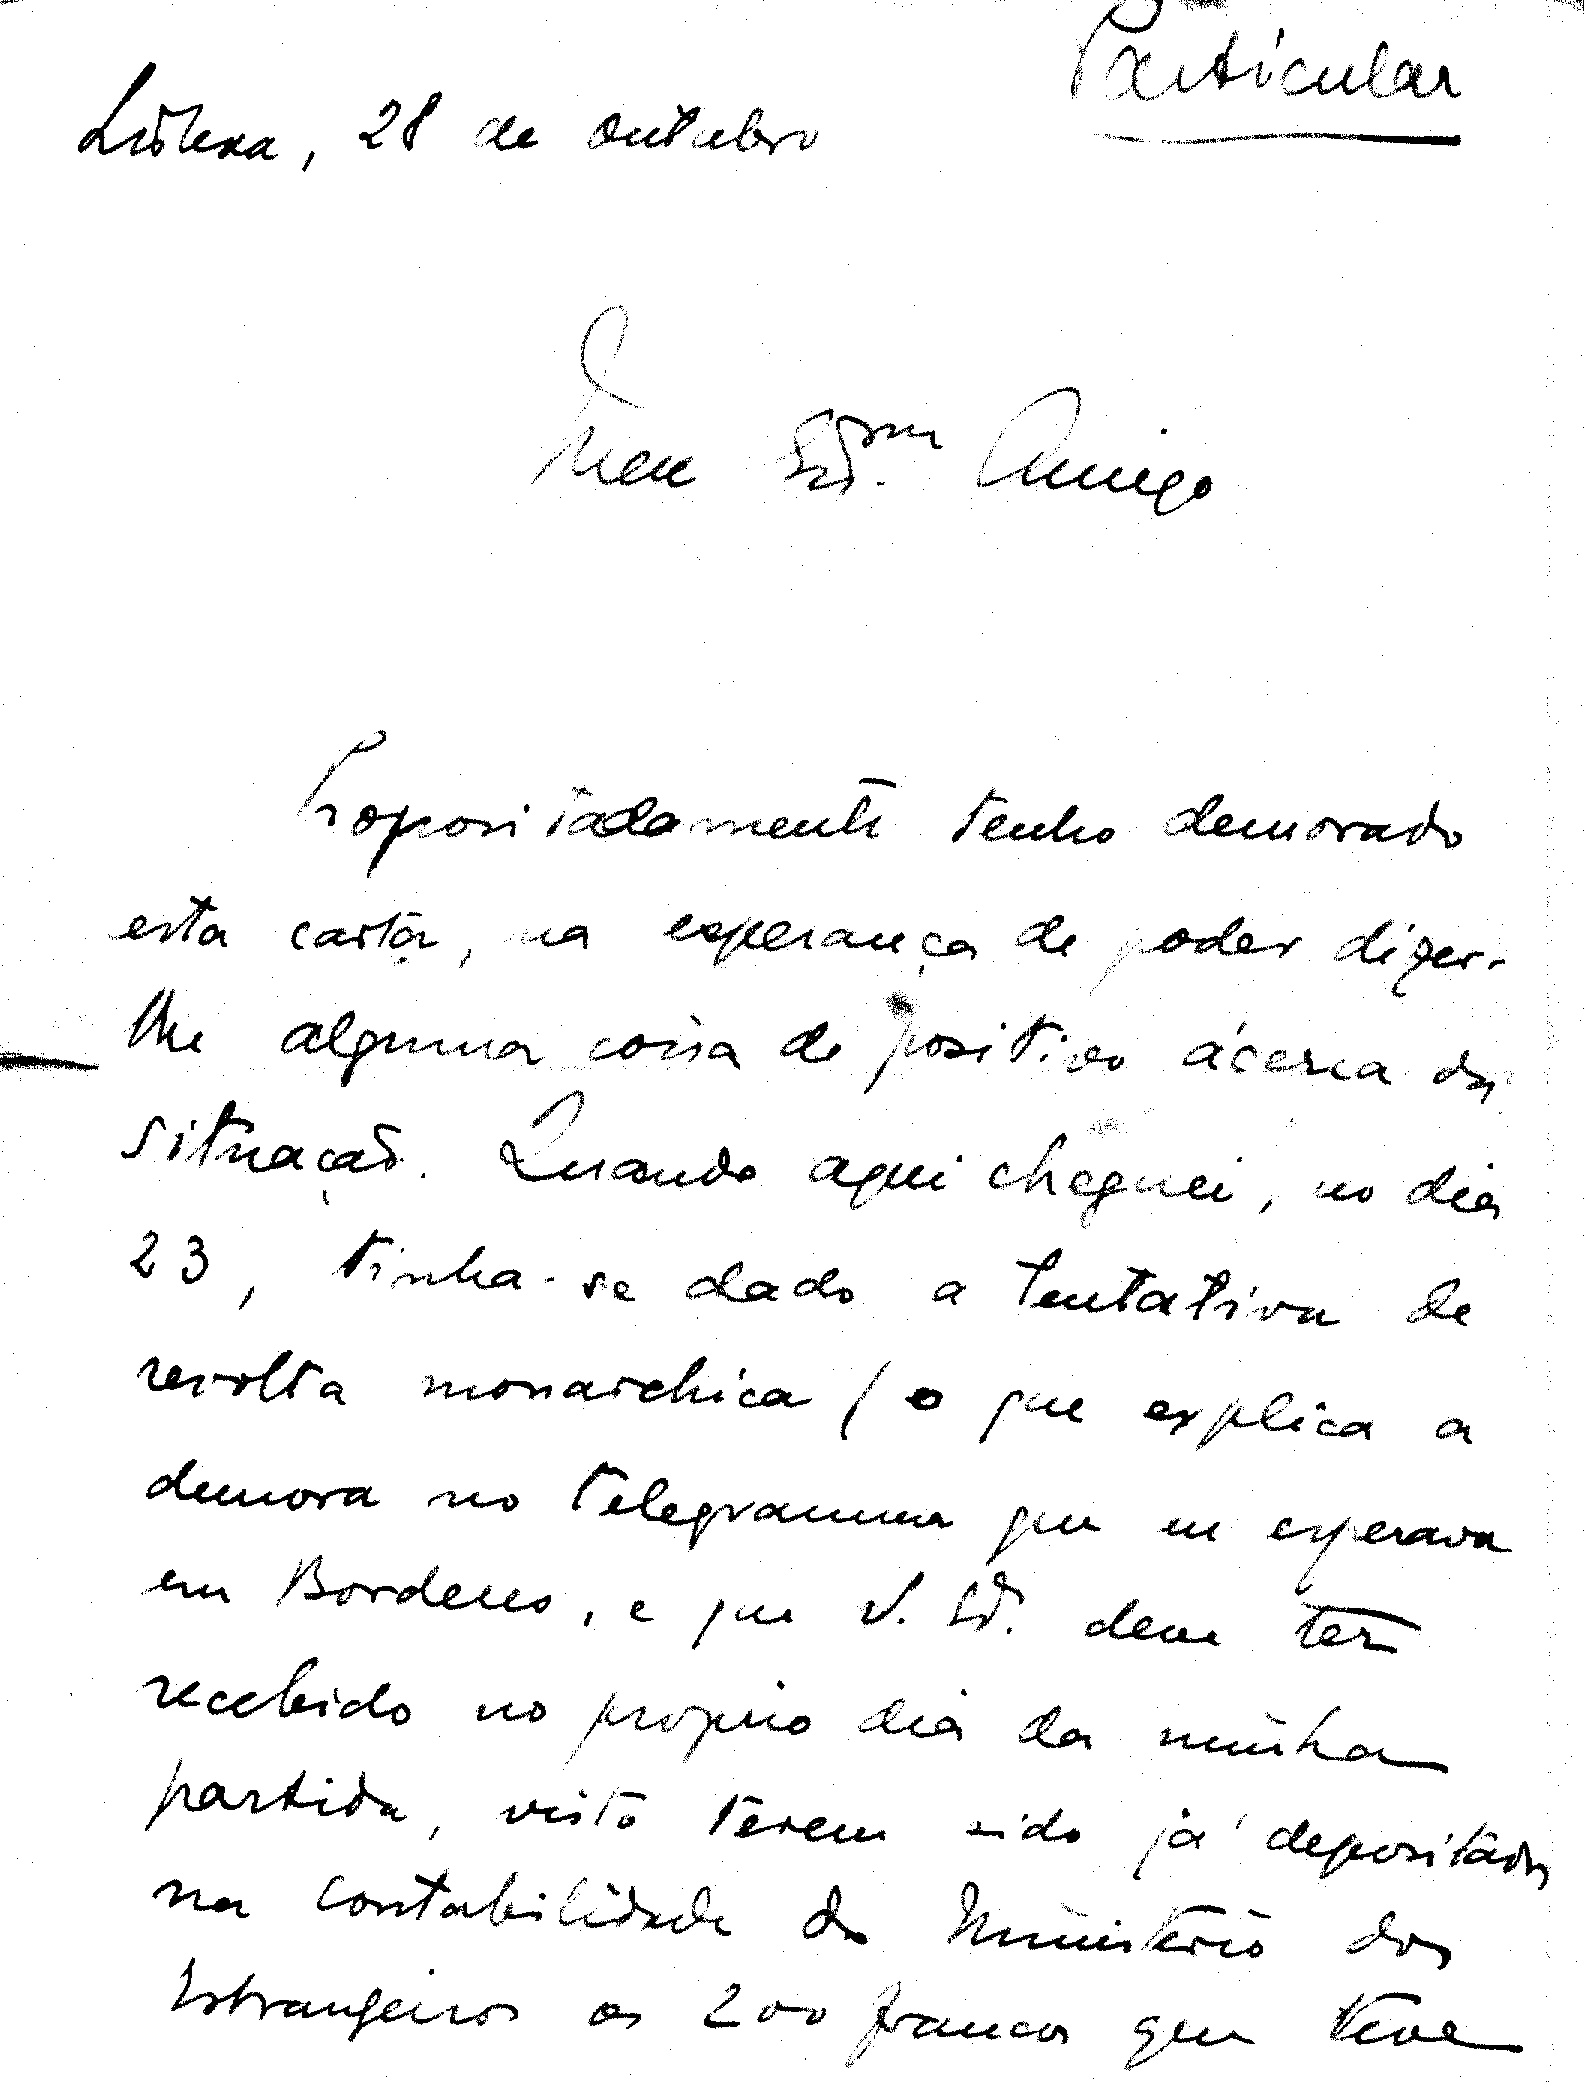 Particular
Lisboa, 28 de outubro
Meu Exmo. Amigo
Propositadamente tenho demorado
esta carta, na esperança de poder dizer-
lhe alguma coisa de positivo ácerca da
situação. Quando aqui cheguei, no dia
23, tinha-se dado a tentativa de
revolta monarchica (o que explica a
demora no telegramma que eu esperava
em Bordeus, e que V. Exa. deve ter
recebido no proprio dia da minha
partida, visto terem sido já depositados
na contabilidade do Ministerio dos
Estrangeiros os 200 francos que teve